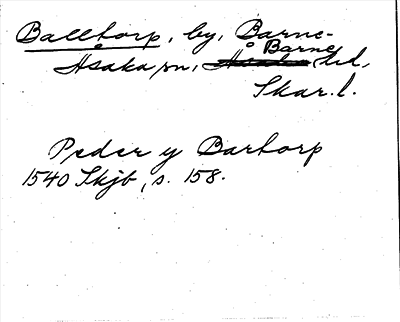 Balltorp, by, Barne-
Åsaka sn, Barne hd,
Skar. l.
Peder y Bartorp
1540 Skjb, s. 158.